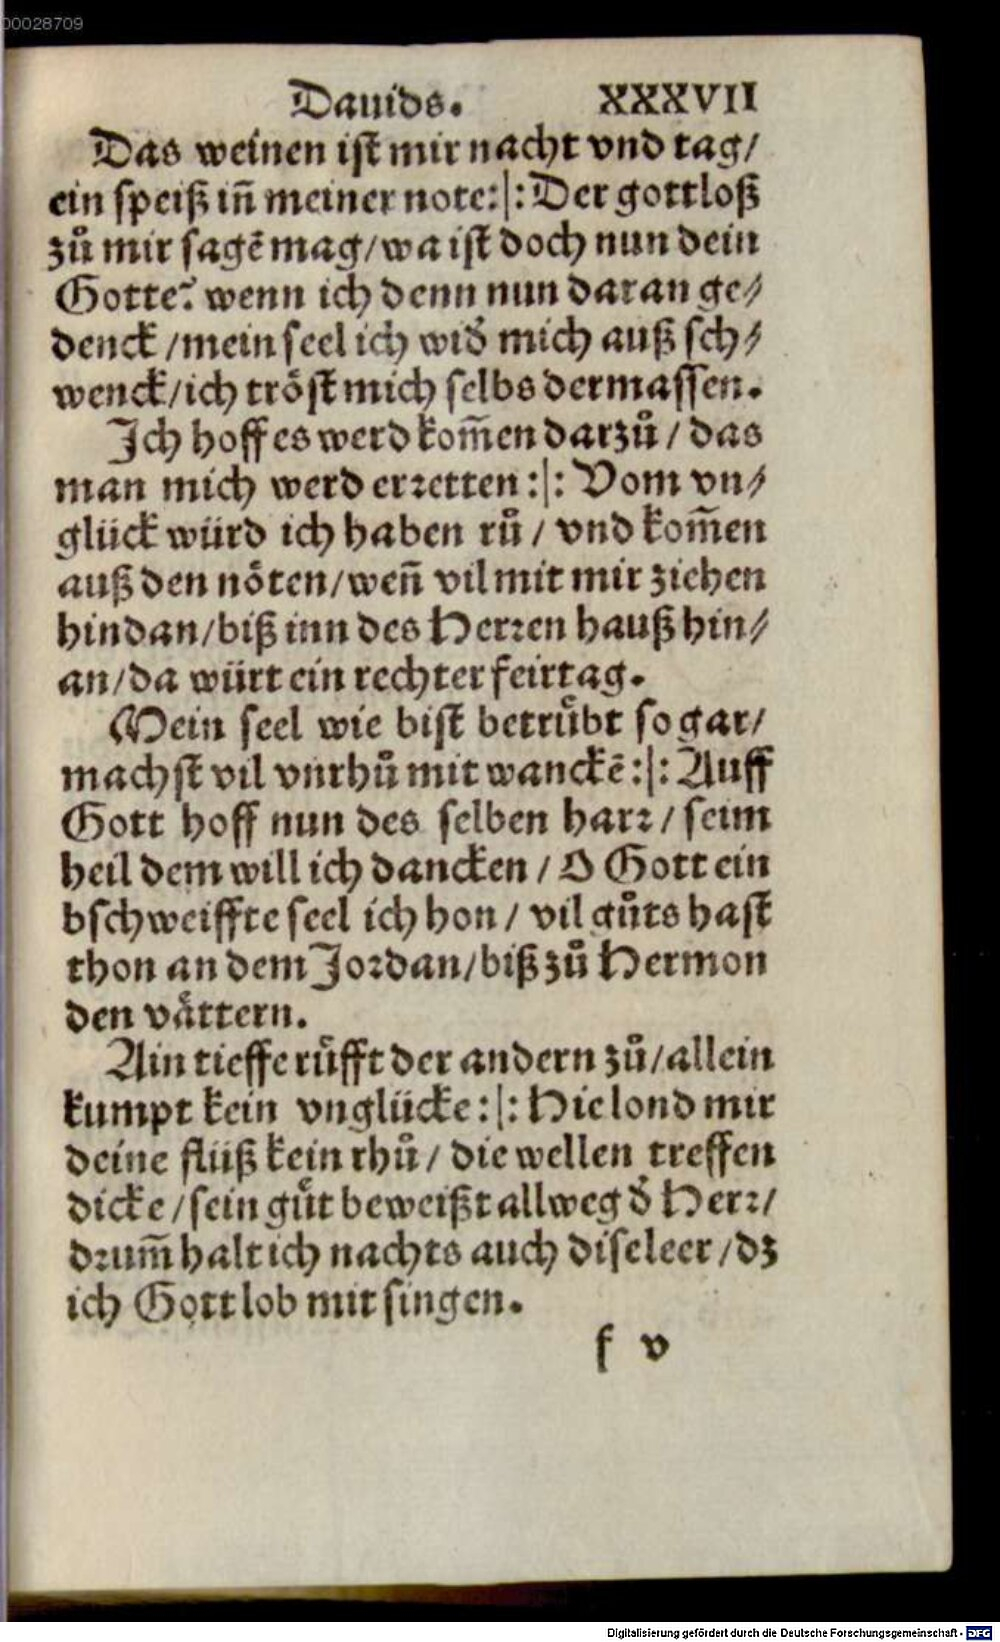 00028709
Dauids. XXXVII
Das weinen ist mir nacht vnd tag/
ein speiß in̄ meiner note:|: Der gottloß
zů mir sagē mag/wa ist doch nun dein
Gotte? wenn ich denn nun daran ge⸗
denck/mein seel ich wid̕ mich auß sch⸗
wenck/ich tröst mich selbs dermassen.
Ich hoff es werd kom̄en darzů/das
man mich werd erꝛetten:|: Vom vn⸗
glück würd ich haben rů/vnd kom̄en
auß den nöten/wen̄ vil mit mir ziehen
hindan/biß inn des Herꝛen hauß hin⸗
an/da würt ein rechter feirtag.
Mein seel wie bist betruͤbt so gar/
machst vil vnrhů mit wanckē:|: Auff
Gott hoff nun des selben harꝛ/seim
heil dem will ich dancken/O Gott ein
bschweiffte seel ich hon/vil gůts hast
thon an dem Joꝛdan/biß zů Hermon
den vaͤttern.
Ain tieffe ruͤfft der andern zů/allein
kumpt kein vnglücke:|: Hie lond mir
deine flüß kein rhů/die wellen treffen
dicke/sein guͤt beweißt allweg d̕ Herꝛ/
dꝛum̄ halt ich nachts auch dise leer/dz
ich Gott lob mit singen.
f v
Digitalisierung gefördert durch die Deutsche Forschungsgemeinschaft - DFG